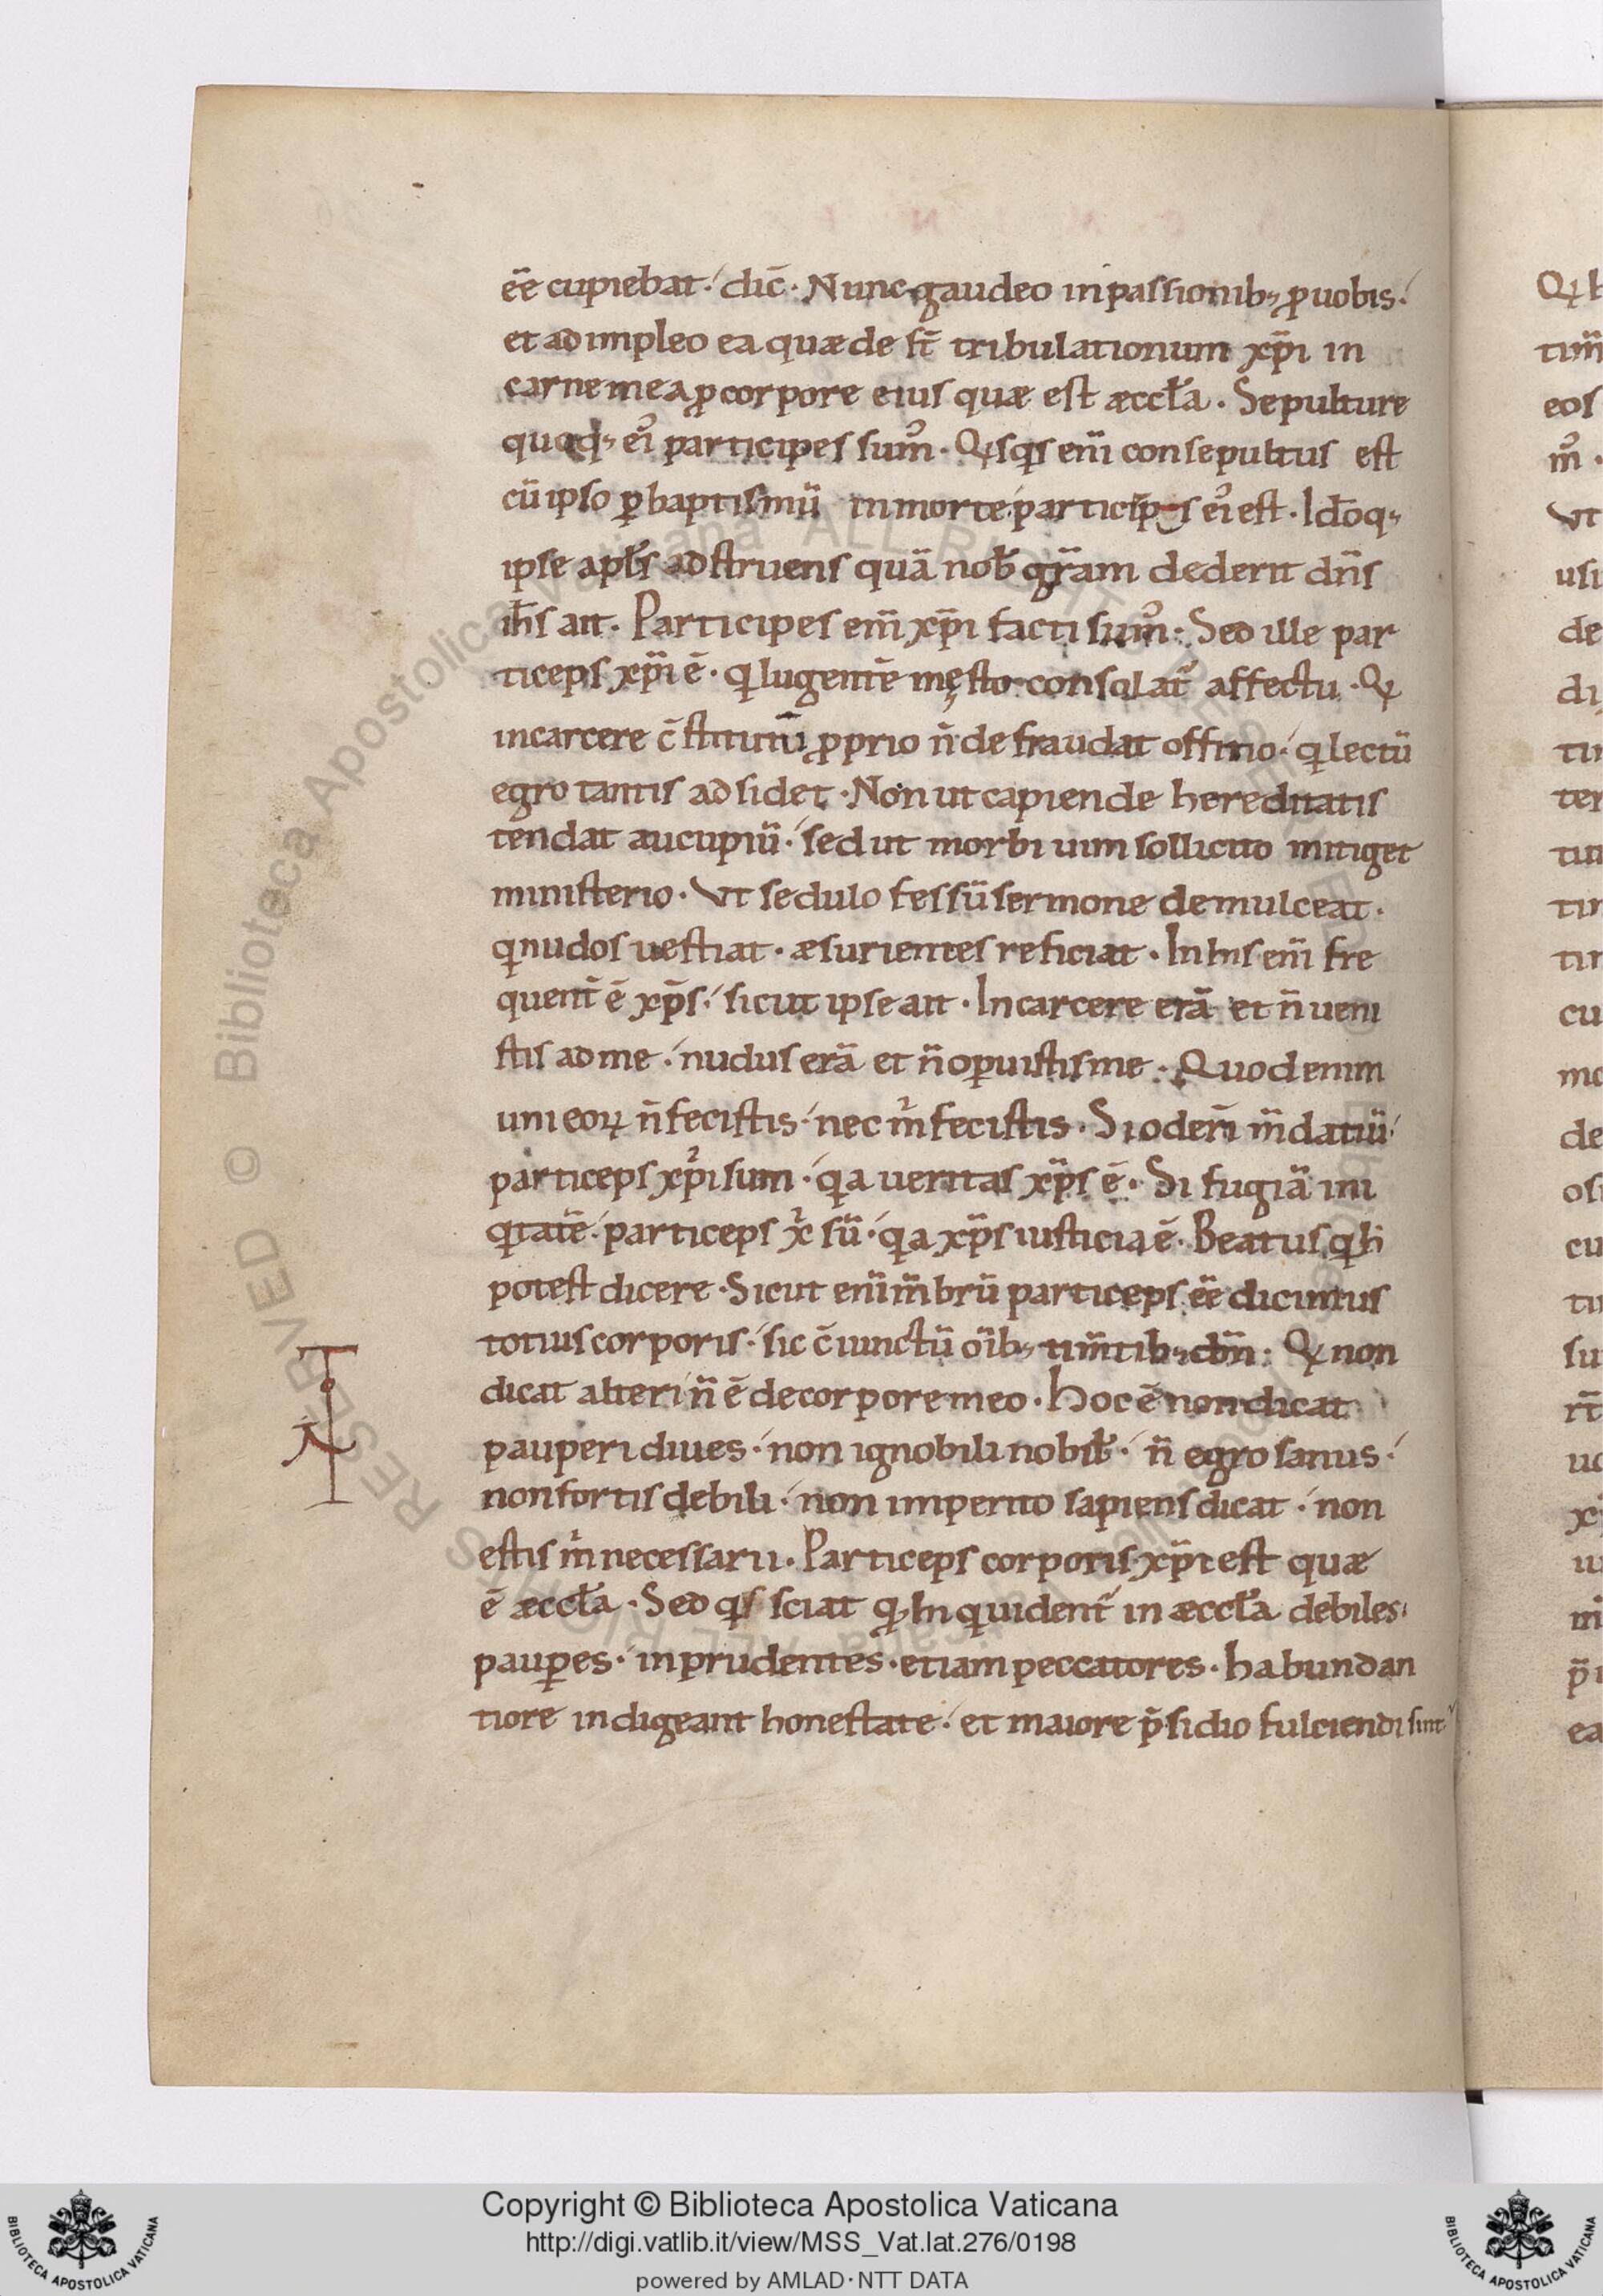 ēē cupiebat·́ dic̄· Nunc gaudeo in passionib; ꝓ uobis·́
et adimpleo ea quæ de st̄ tribulationum xp̄i in
carne mea ꝓ corpore eius quæ est æccl̄a. Sepulture
quoq; ei᾽ participes sum᾽. Qͥsqͥs enī consepultus est
cū ipso ꝑ baptismū in morte particips ei᾽ est. Id̄oq;
ipse apl̄s adstruens quā nob̄ gr̄am dederit dn̄s
ih̄s ait. Participes enī xp̄i facti sum᾽. Sed ille par
ticeps xp̄i ē· qͥ lugentē męsto consolat᷑ affectu. Qͥ
in carcere c̄stitutū ꝓprio n̄ defraudat offitio·́ qͥ lectū
egrotantis adsidet. Non ut capiende hereditatis
tendat aucupiū·́ sed ut morbi uim sollicito mitiget
ministerio. Vt sedulo fessū sermone demulceat.
qͥ nudos uestiat· æsurientes reficiat. In his enī fre
quent̄ ē xp̄s·́ sicut ipse ait. In carcere erā et n̄ ueni
stis ad me·́ nudus erā et n̄ oꝑuistis me. Quod enim
uni eoꝝ n̄ fecistis·́ nec m̍ fecistis. Si oderī m̄datiū·́
particeps xp̄i sum·́ qͥa ueritas xp̄s ē. Si fugiā ini
qͥtatē·́ particeps xͥ sū·́ qͥa xp̄s iusticia ē. Beatus qͥ h̄
potest dicere. Sicut enī m̄brū particeps ēē dicimus
totius corporis·́ sic c̄iunctū oīb; tim̄tib; dn̄m. Qͥ non
dicat alteri n̄ ē de corpore meo. Hoc ē non dicat
pauperi diues·́ non ignobili nobil̄·́ n̄ egro sanus·́
non fortis debili·́ non imperito sapiens dicat·́ non
estis m̍ necessarii. Particeps corporis xp̄i est quæ
ē æccl̄a. Sed qͥs sciat qͥ hi qͥ uident᷑ in æccl̄a debiles·
pauꝑes·́ inprudentes· etiam peccatores· habundan
tiore indigeant honestate·́ et maiore p̄sidio fulciendi sint
Copyright © Biblioteca Apostolica Vaticana
http://digi.vatlib.it/view/MSS_Vat.lat.276/0198
powered by AMLAD·NTT DATA